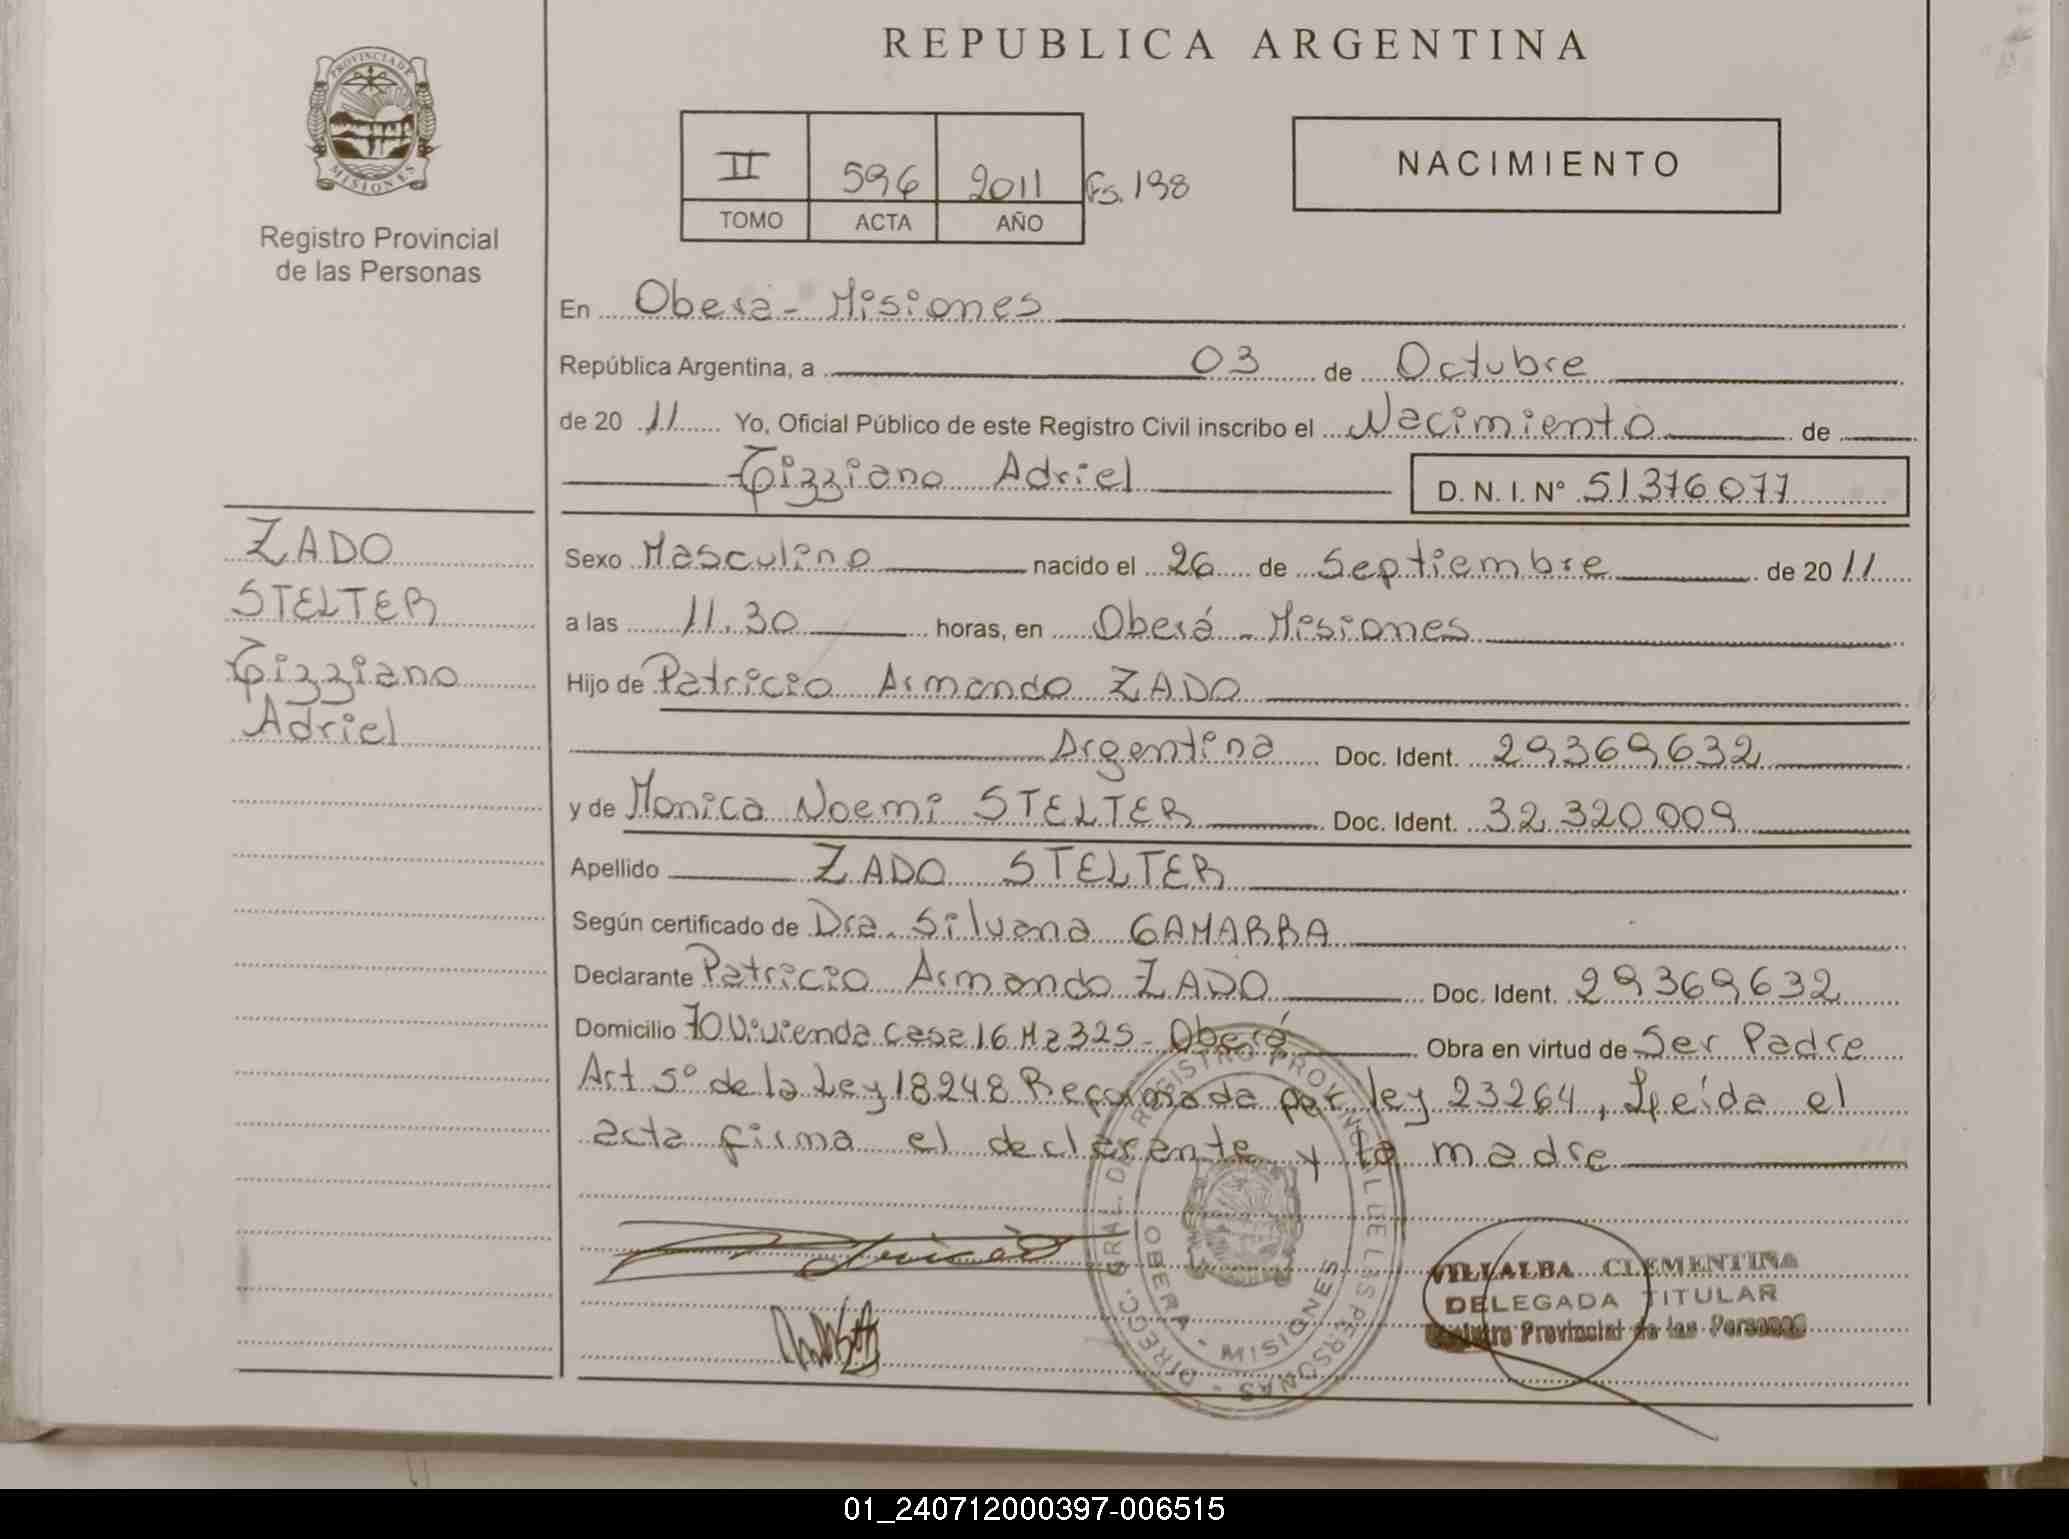 PROVINCIA DE
MISIONES
Registro Provincial
de las Personas
REPUBLICA ARGENTINA
II 596 2011 Fs. 198
TOMO ACTA AÑO
NACIMIENTO
En Obera - Misiones
República Argentina, a 03 de Octubre
de 2011 Yo, Oficial Público de este Registro Civil inscribo el Nacimiento de
Tizziano Adriel D. N. I. Nº 51376077
ZADO
STELTER
Tizziano
Adriel
Sexo Masculino nacido el 26 de Septiembre de 2011
a las 11.30 horas, en Oberá - Misiones
Hijo de Patricio Armando ZADO
Argentina Doc. Ident. 29369632
y de Monica Noemi STELTER Doc. Ident. 32.320.009
Apellido ZADO STELTER
Según certificado de Dra. Silvana GAMARRA
Declarante Patricio Armando ZADO Doc. Ident. 29369632
Domicilio 70 Vivienda Casa 16 Mz 325 - Oberá Obra en virtud de Ser Padre
Art 5º de la Ley 18248 Reformada por ley 23264, Leída el
acta firma el declarante y la madre
DIRECC. GRAL. DEL REGISTRO PROVINCIAL DE LAS PERSONAS -
OBERA - MISIONES
VILLALBA CLEMENTINA
DELEGADA TITULAR
Registro Provincial de las Personas
01_240712000397-006515